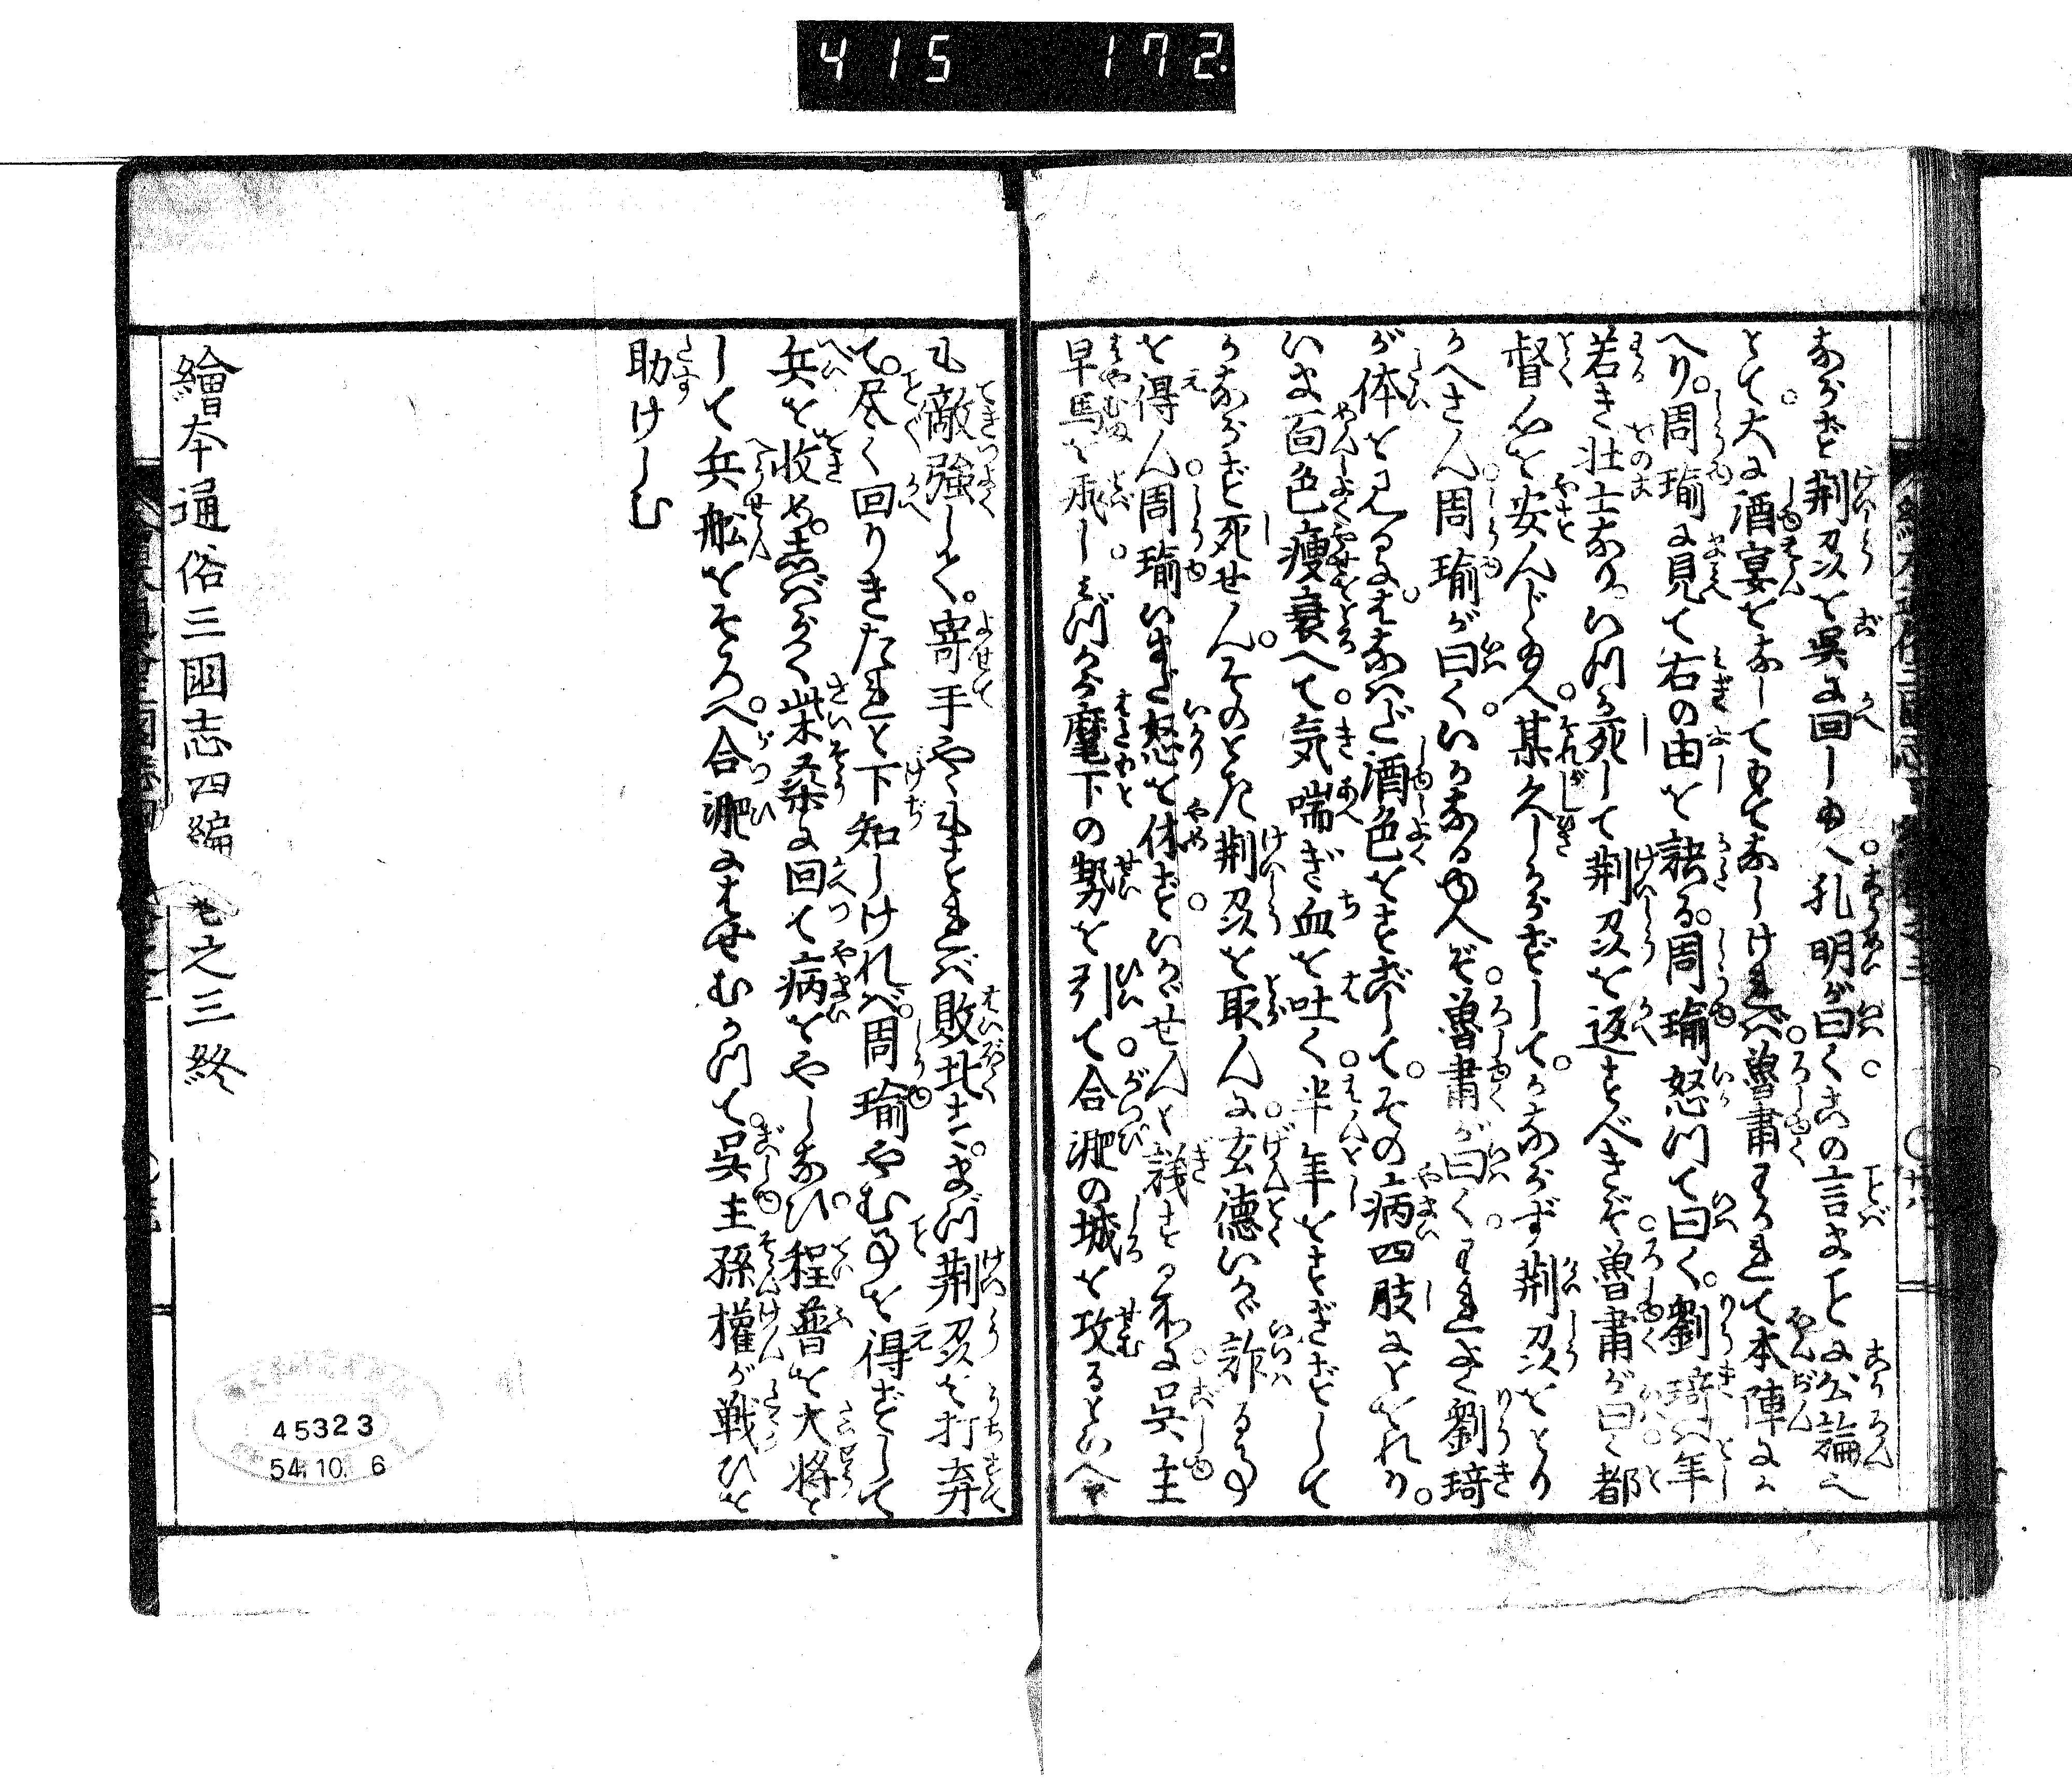 415 172.
なかば荆州を呉に回し給へ孔明が曰くこの言まことに公論へ
とて大に酒宴をなしてもてなしければ魯肅わかれて本陣にか
へり周瑜に見て右の由を訣る周瑜怒つて曰く劉琦ハ年
若き壮士なりいつか死して荆州を返すべきぞ魯肅が曰く都
督心を安んじ給へ某久しからずしてかならず荆州をとり
かへさん周瑜が曰くいかなるゆへぞ魯肅が曰くわれまさに劉琦
が体を見るにはなはだ酒色をすごしてその病四肢にとをれり
いま面色痩衰へて気喘ぎ血を吐く半年をすぎずして
かならず死せんそのとき荆州を取んに玄徳いかで詐る事
を得ん周瑜いまだ怒を休ずいかゞせんと議する所に呉主
早馬を飛しはづから麾下の勢を引て合淝の城を攻るといへ
ども敵強して寄手やゝもすれば敗北すまづ荆州を打弃
て尽く回りきたれと下知しければ周瑜やむ事を得ずして
兵を收めしばらく柴桑に回て病をやしなひ程普を大将と
して兵舩をそろへ合淝にはせむかつて呉主孫權が戦ひを
助けしむ
繪本通俗三國志四編 巻之三終
45323
54.10.6